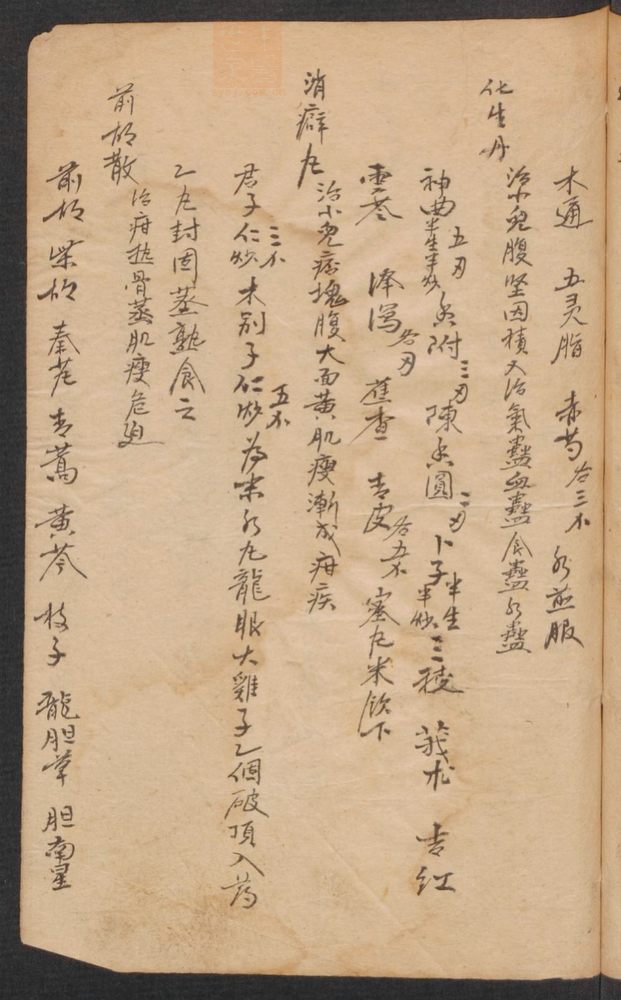 木通 五灵脂 赤芍各三个 水煎服
化生丹
治小兒腹堅因積又治氣蠱血蠱食蠱水蠱
神曲半生半炒五刃 香附三刃 陳香圓二刃 卜子半生半炒 三稜 莪朮 吉红
雲苓 泽瀉各刃 蕉查 青皮各五个 蜜丸米飲下
消癖丸
治小兒痞塊腹大面黄肌瘦漸成疳疾
君子仁炒三个 木别子仁炒五个 為末水丸龍眼大雞子乙個破頂入药
乙丸封固蒸熟食之
前胡散
治疳热骨蒸肌瘦危廹
前胡 柴胡 秦艽 青蒿 黄芩 枝子 龍胆草 胆南星